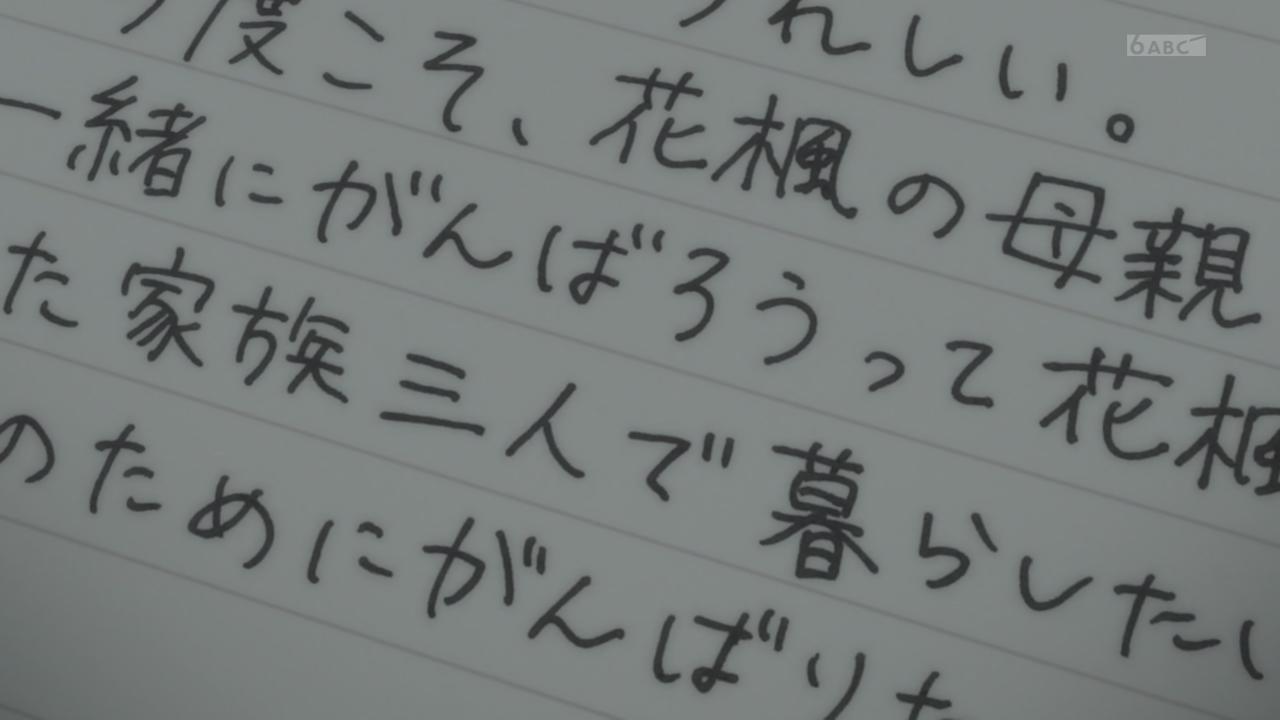 うれしい。
度こそ、花楓の母親
一緒にがんばろうって花楓
た家族三人で暮らしたい
のためにがんばりた
6 ABC